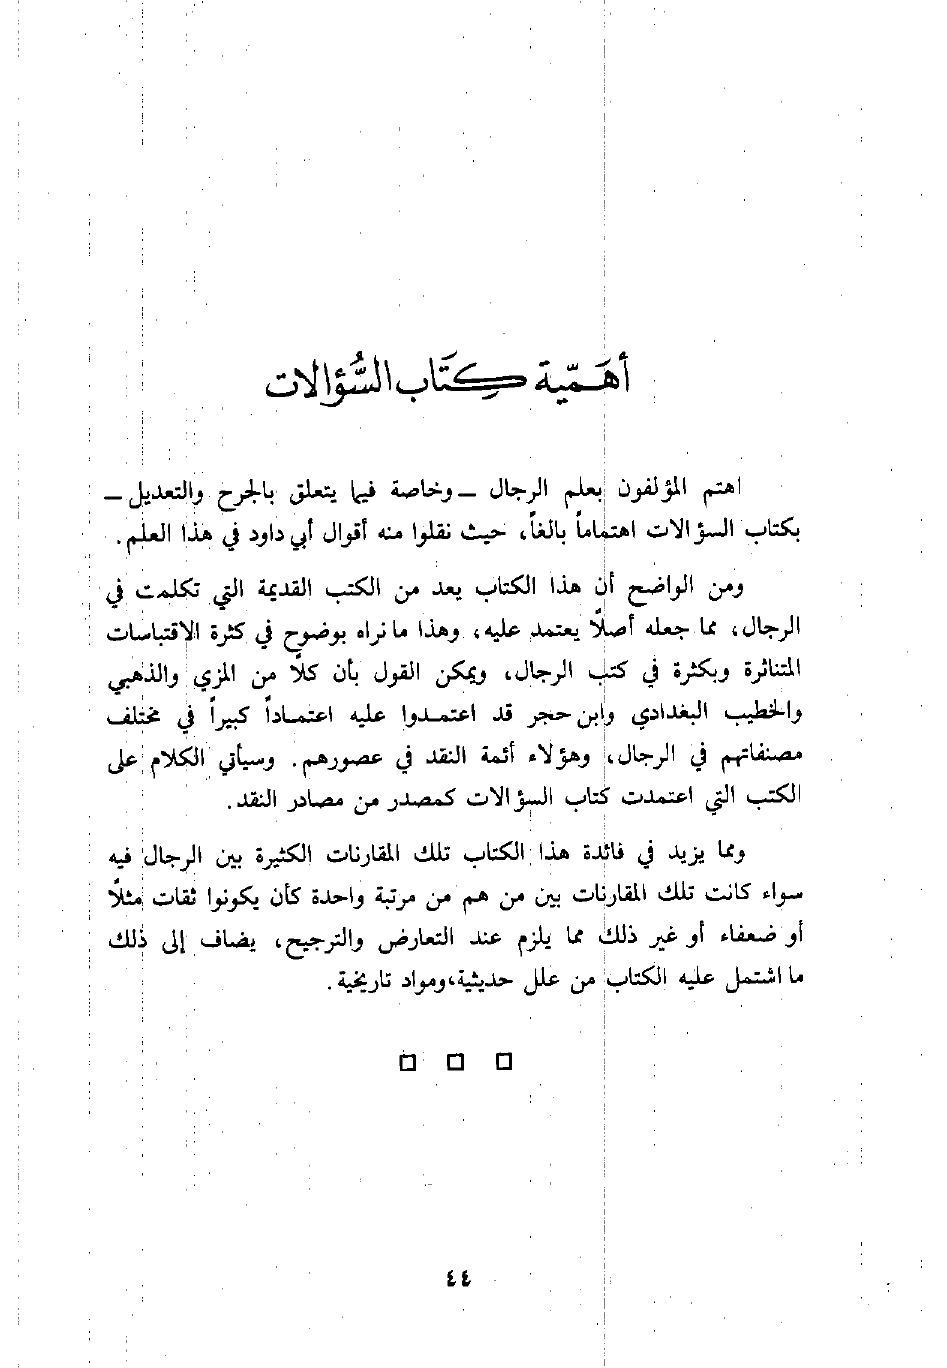 أهَميّة كِتَاب السُّؤالات
اهتم المؤلفون بعلم الرجال ــ وخاصة فيما يتعلق بالجرح والتعديل ــ
بكتاب السؤالات اهتماماً بالغاً، حيث نقلوا منه أقوال أبي داود في هذا العلم.
ومن الواضح أن هذا الكتاب يعد من الكتب القديمة التي تكلمت في
الرجال، مما جعله أصلًا يعتمد عليه، وهذا ما نراه بوضوح في كثرة الاقتباسات
المتناثرة وبكثرة في كتب الرجال، ويمكن القول بأن كلًا من المزي والذهبي
والخطيب البغدادي وابن حجر قد اعتمدوا عليه اعتماداً كبيراً في مختلف
مصنفاتهم في الرجال، وهؤلاء أئمة النقد في عصورهم. وسيأتي الكلام على
الكتب التي اعتمدت كتاب السؤالات كمصدر من مصادر النقد.
ومما يزيد في فائدة هذا الكتاب تلك المقارنات الكثيرة بين الرجال فيه
سواء كانت تلك المقارنات بين من هم من مرتبة واحدة كأن يكونوا ثقات مثلًا
أو ضعفاء أو غير ذلك مما يلزم عند التعارض والترجيح، يضاف إلى ذلك
ما اشتمل عليه الكتاب من علل حديثية، ومواد تاريخية.
٤٤